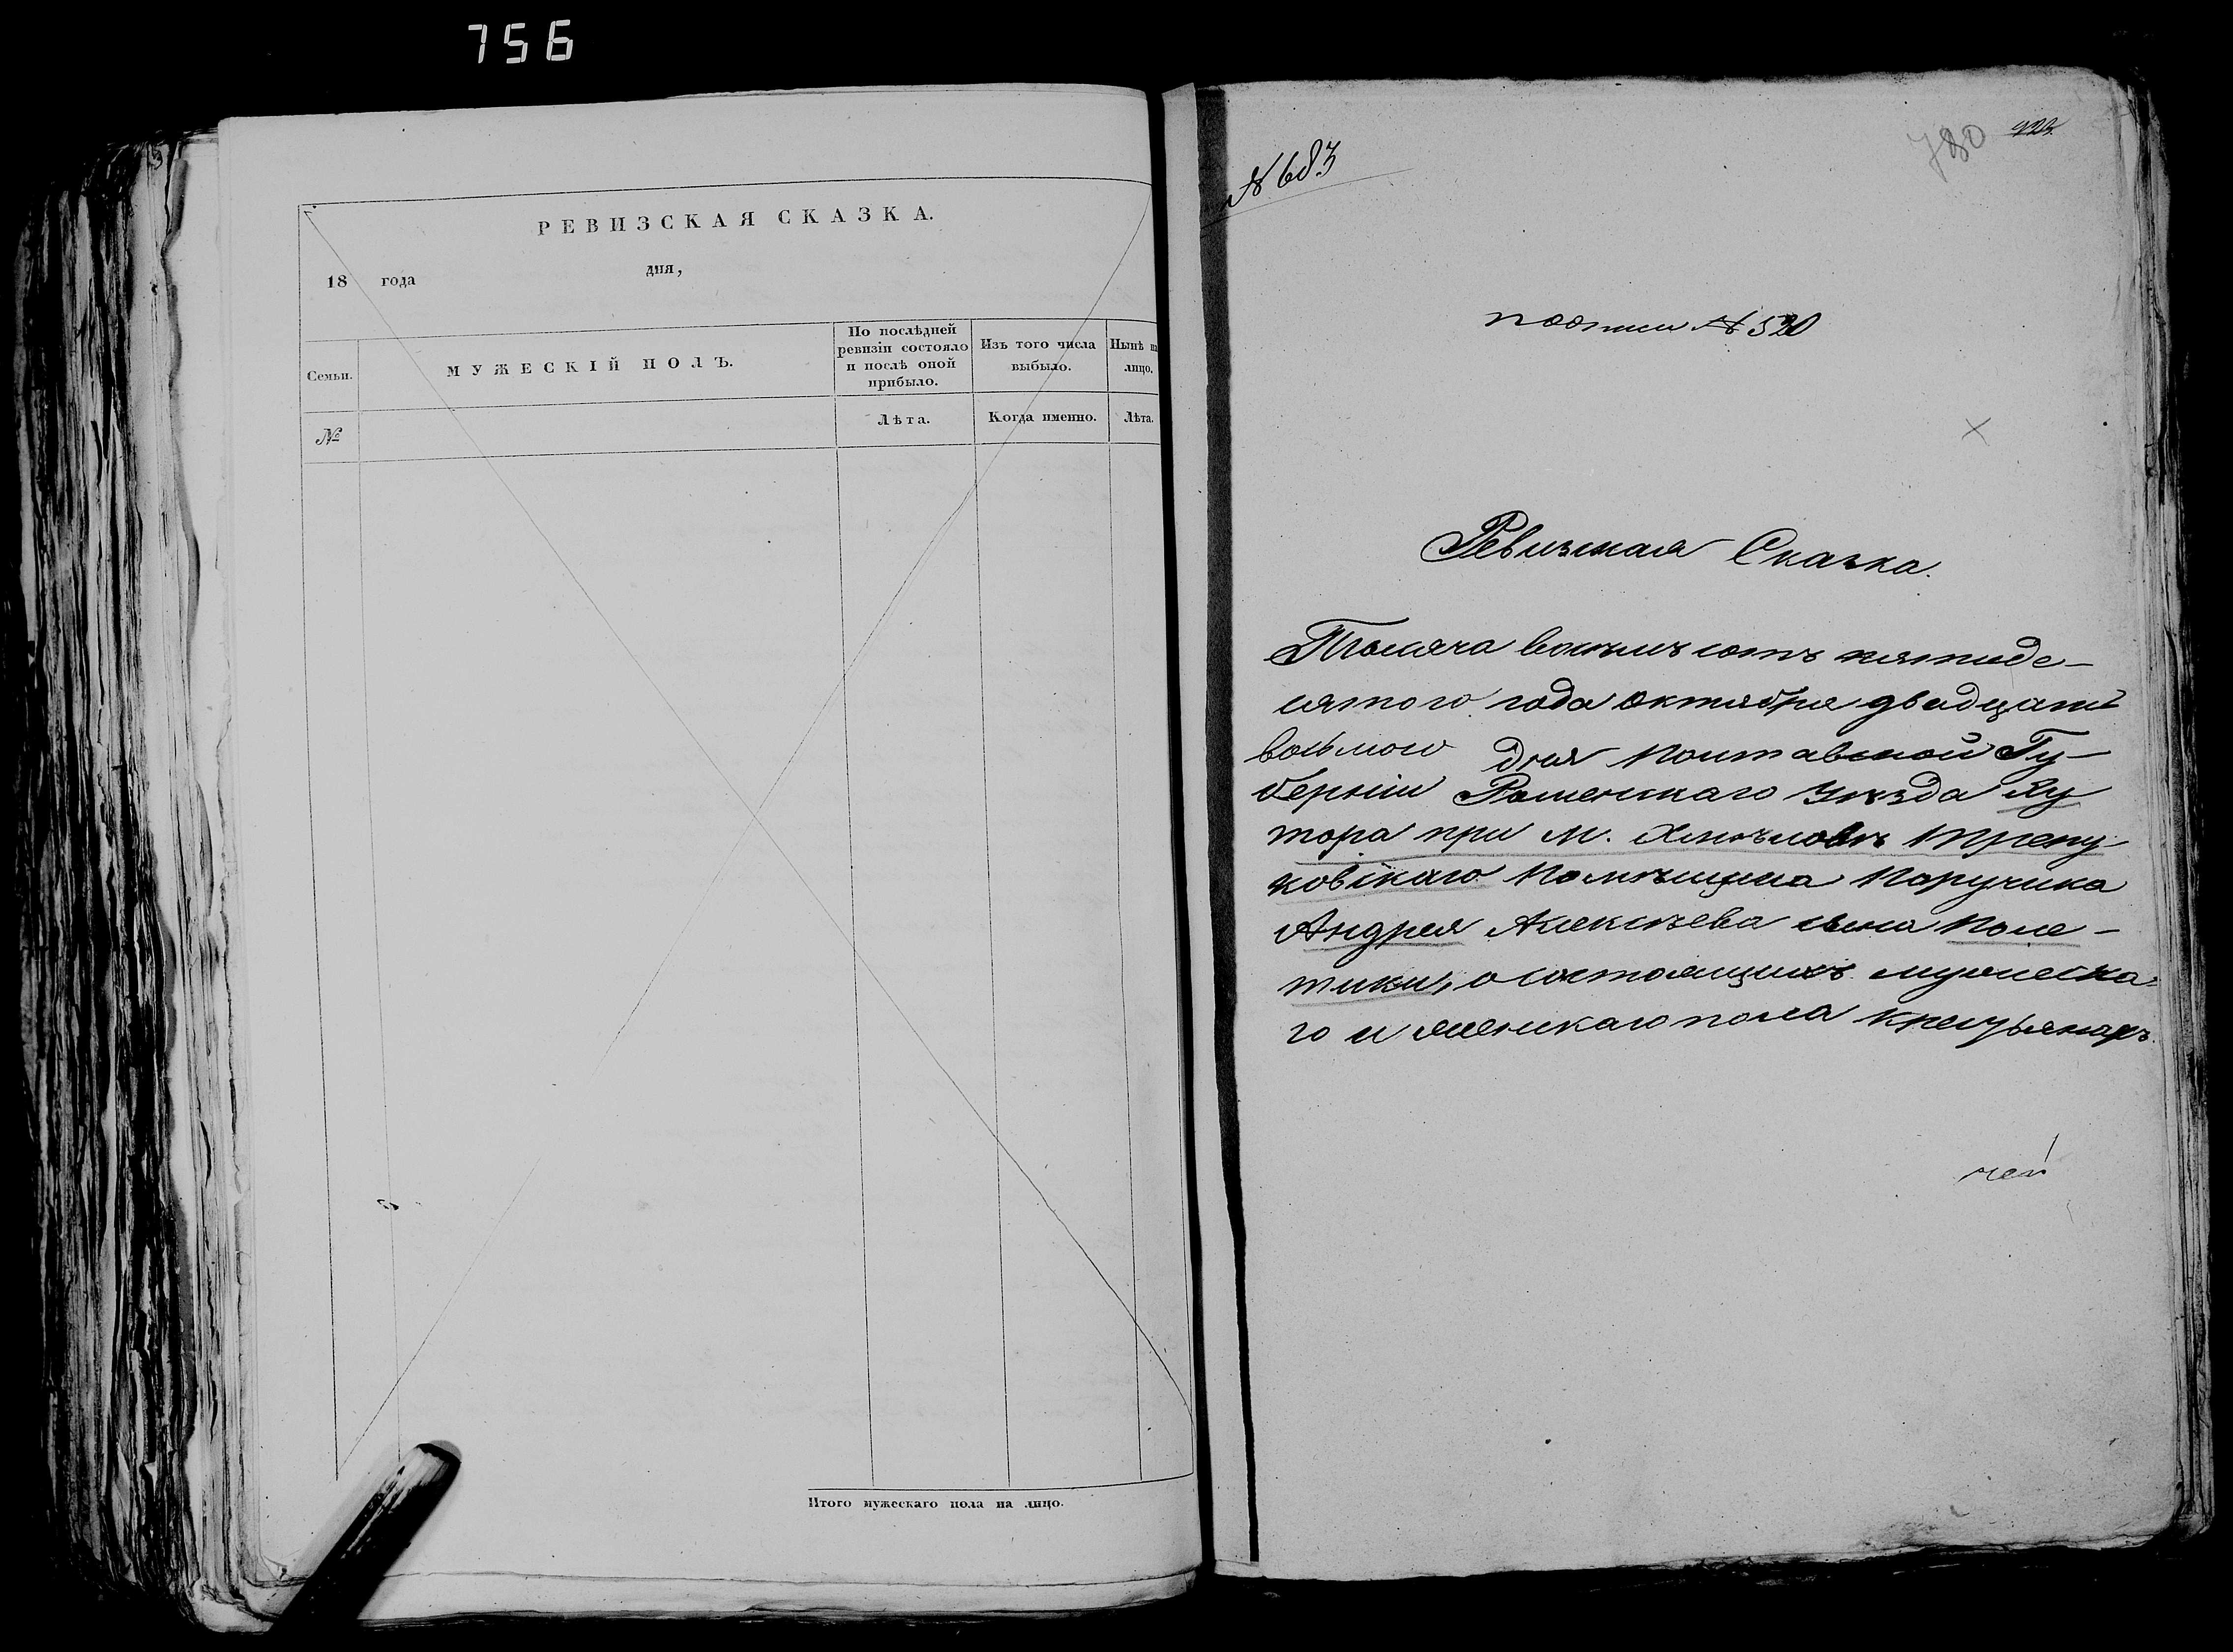 756
РЕВИЗСКАЯ СКАЗКА.
18 года дня,
Семьи. МУЖЕСКІЙ ПОЛЪ. По послѣдней ревизіи состояло и послѣ оной прибыло. Изъ того числа выбыло. Нынѣ на лицо.
№ Лѣта. Когда именно. Лѣта.
Итого мужескаго пола на лицо.
№ 683
780 723
по описи № 520
Ревизская Сказка.
Тысяча восѣмъ сотъ пятиде-
сятого года октября двадцать
восьмого дня Полтавской Гу-
берніи Роменскаго Уѣзда Ху
тора при м. Хмѣловѣ
Помѣщика Поручика
Андрея Алексѣева сына Поле-
тики, о состоящихъ мужеска-
го и женскаго пола крестьянахъ.